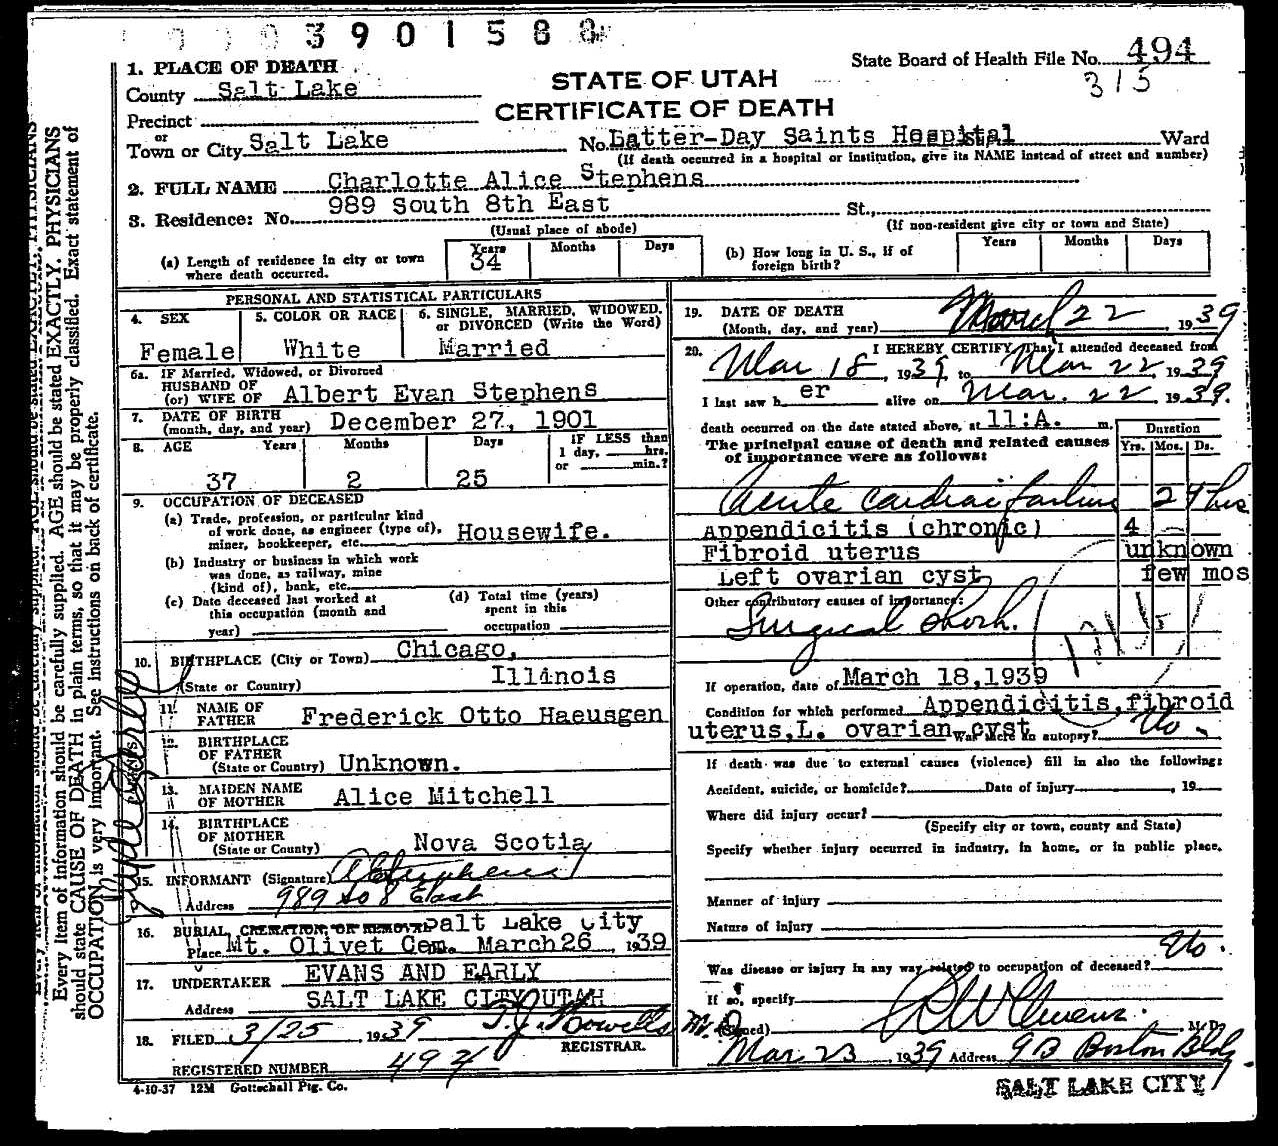 3901588
State Board of Health File No. 494
315
1. PLACE OF DEATH
County Salt Lake
STATE OF UTAH
CERTIFICATE OF DEATH
Precinct
or
Town or City Salt Lake No. Latter-Day Saints Hospital Ward
(If death occurred in a hospital or institution, give its NAME instead of street and number)
2. FULL NAME Charlotte Alice Stephens
3. Residence: No. 989 South 8th East St.,
(Usual place of abode) (If non-resident give city or town and State)
(a) Length of residence in city or town where death occurred. Years 34 Months Days
(b) How long in U. S., if of foreign birth? Years Months Days
PERSONAL AND STATISTICAL PARTICULARS
4. SEX Female
5. COLOR OR RACE White
6. SINGLE, MARRIED, WIDOWED, or DIVORCED (Write the Word) Married
6a. IF Married, Widowed, or Divorced
HUSBAND OF
(or) WIFE OF Albert Evan Stephens
7. DATE OF BIRTH
(month, day, and year) December 27, 1901
8. AGE Years Months Days IF LESS than
1 day, hrs.
or min.?
37 2 25
9. OCCUPATION OF DECEASED
(a) Trade, profession, or particular kind
of work done, as engineer (type of),
miner, bookkeeper, etc. Housewife.
(b) Industry or business in which work
was done, as railway, mine
(kind of), bank, etc.
(c) Date deceased last worked at
this occupation (month and
year)
(d) Total time (years)
spent in this
occupation
10. BIRTHPLACE (City or Town) Chicago,
(State or Country) Illinois
11. NAME OF
FATHER Frederick Otto Haeusgen
12. BIRTHPLACE
OF FATHER
(State or Country) Unknown.
13. MAIDEN NAME
OF MOTHER Alice Mitchell
14. BIRTHPLACE
OF MOTHER
(State or County) Nova Scotia
15. INFORMANT (Signature) A E Stephens
Address 989 So 8 East
16. BURIAL, CREMATION, OR REMOVAL Salt Lake City
Place Mt. Olivet Cem. March 26, 1939
17. UNDERTAKER EVANS AND EARLY
Address SALT LAKE CITY UTAH
18. FILED 3/25, 1939 T. J. Howells
REGISTRAR.
REGISTERED NUMBER 494
4-10-37 12M Gottschall Ptg. Co.
19. DATE OF DEATH
(Month, day, and year) March 22, 1939
20. I HEREBY CERTIFY, That I attended deceased from
Mar 18, 1939, to Mar 22 1939
I last saw her alive on Mar. 22, 1939.
death occurred on the date stated above, at 11:A. m.
The principal cause of death and related causes
of importance were as follows:
Duration
Yrs. Mos. Ds.
Acute cardiac failure 24 hrs
Appendicitis (chronic) 4
Fibroid uterus unknown
Left ovarian cyst few mos
Other contributory causes of importance:
Surgical shock.
If operation, date of March 18,1939
Condition for which performed Appendicitis, fibroid
uterus, L. ovarian cyst Was there an autopsy? No
If death was due to external causes (violence) fill in also the following:
Accident, suicide, or homicide? Date of injury , 19
Where did injury occur?
(Specify city or town, county and State)
Specify whether injury occurred in industry, in home, or in public place.
Manner of injury
Nature of injury
Was disease or injury in any way related to occupation of deceased? No.
If so, specify
(Signed) M. D.
Mar 23, 1939 Address 913 Boston Bldg
SALT LAKE CITY
Every Item of information should be carefully supplied. AGE should be stated EXACTLY. PHYSICIANS
should state CAUSE OF DEATH in plain terms, so that it may be properly classified. Exact statement of
OCCUPATION is very important. See instructions on back of certificate.